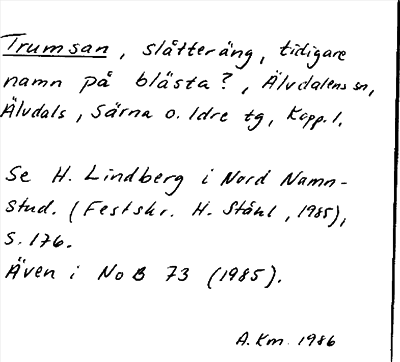 Trumsan, slåtteräng, tidigare
namn på blästa?, Älvdalens sn,
Älvdals, Särna o. Idre tg, Kopp. l.
Se H. Lindberg i Nord Namn-
stud. (Festskr. H. Ståhl, 1985),
S. 176.
Även i NoB 73 (1985).
A. Km. 1986